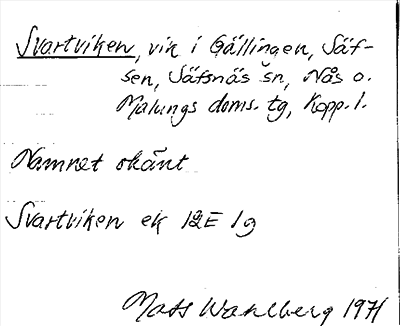 Svartviken, vik i Gällingen, Säf-
sen, Säfsnäs sn, Nås o.
Malungs doms. tg, Kopp. l.
Namnet okänt
Svartviken ek 12E 1g
Mats Wahlberg 1971